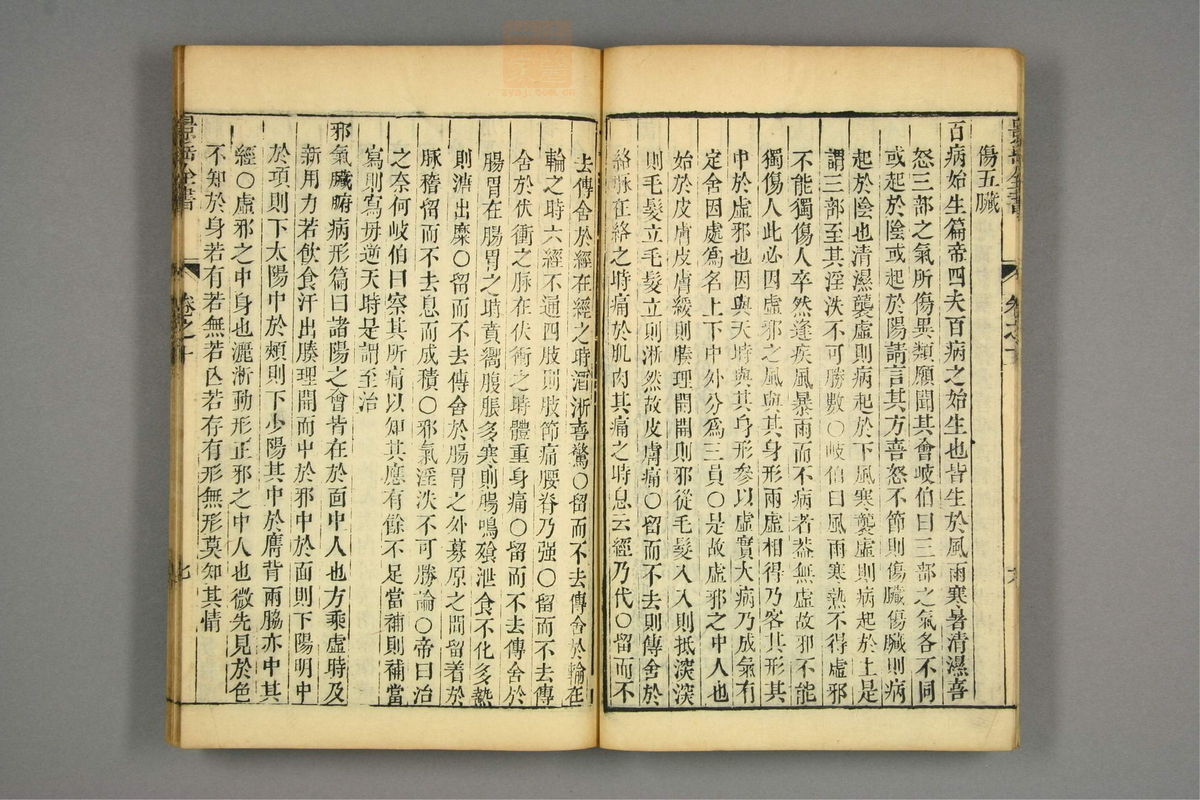 傷五臟
百病始生篇帝曰夫百病之始生也皆生於風雨寒暑清濕喜
怒三部之氣所傷異類願聞其會岐伯曰三部之氣各不同
或起於陰或起於陽請言其方喜怒不節則傷臟傷臟則病
起於陰也清濕襲虛則病起於下風寒襲虛則病起於上是
謂三部至其淫泆不可勝數○岐伯曰風雨寒熱不得虛邪
不能獨傷人卒然逢疾風暴雨而不病者葢無虛故邪不能
獨傷人此必因虛邪之風與其身形兩虛相得乃客其形其
中於虛邪也因與天時與其身形參以虛實大病乃成氣有
定舍因處爲名上下中外分爲三員○是故虛邪之中人也
始於皮膚皮膚緩則腠理開開則邪從毛髮入入則抵深深
則毛髮立毛髮立則淅然故皮膚痛○留而不去則傳舍於
絡脉在絡之時痛於肌肉其痛之時息云經乃代○留而不
去傳舍於經在經之時洒淅喜驚○留而不去傳舍於輸在
輸之時六經不通四肢則肢節痛腰脊乃强○留而不去傳
舍於伏衝之脉在伏衝之時體重身痛○留而不去傳舍於
腸胃在腸胃之時賁嚮腹脹多寒則腸鳴飱泄食不化多熱
則溏出糜○留而不去傳舍於腸胃之外募原之間留着於
脉稽留而不去息而成積○邪氣淫泆不可勝論○帝曰治
之奈何岐伯曰察其所痛以知其應有餘不足當補則補當
寫則寫毋逆天時是謂至治
邪氣臟腑病形篇曰諸陽之會皆在於面中人也方乘虛時及
新用力若飲食汗出腠理開而中於邪中於面則下陽明中
於項則下太陽中於頰則下少陽其中於膺背兩脇亦中其
經○虛邪之中身也灑淅動形正邪之中人也微先見於色
不知於身若有若無若亡若存有形無形莫知其情
景岳全書
卷之十
七